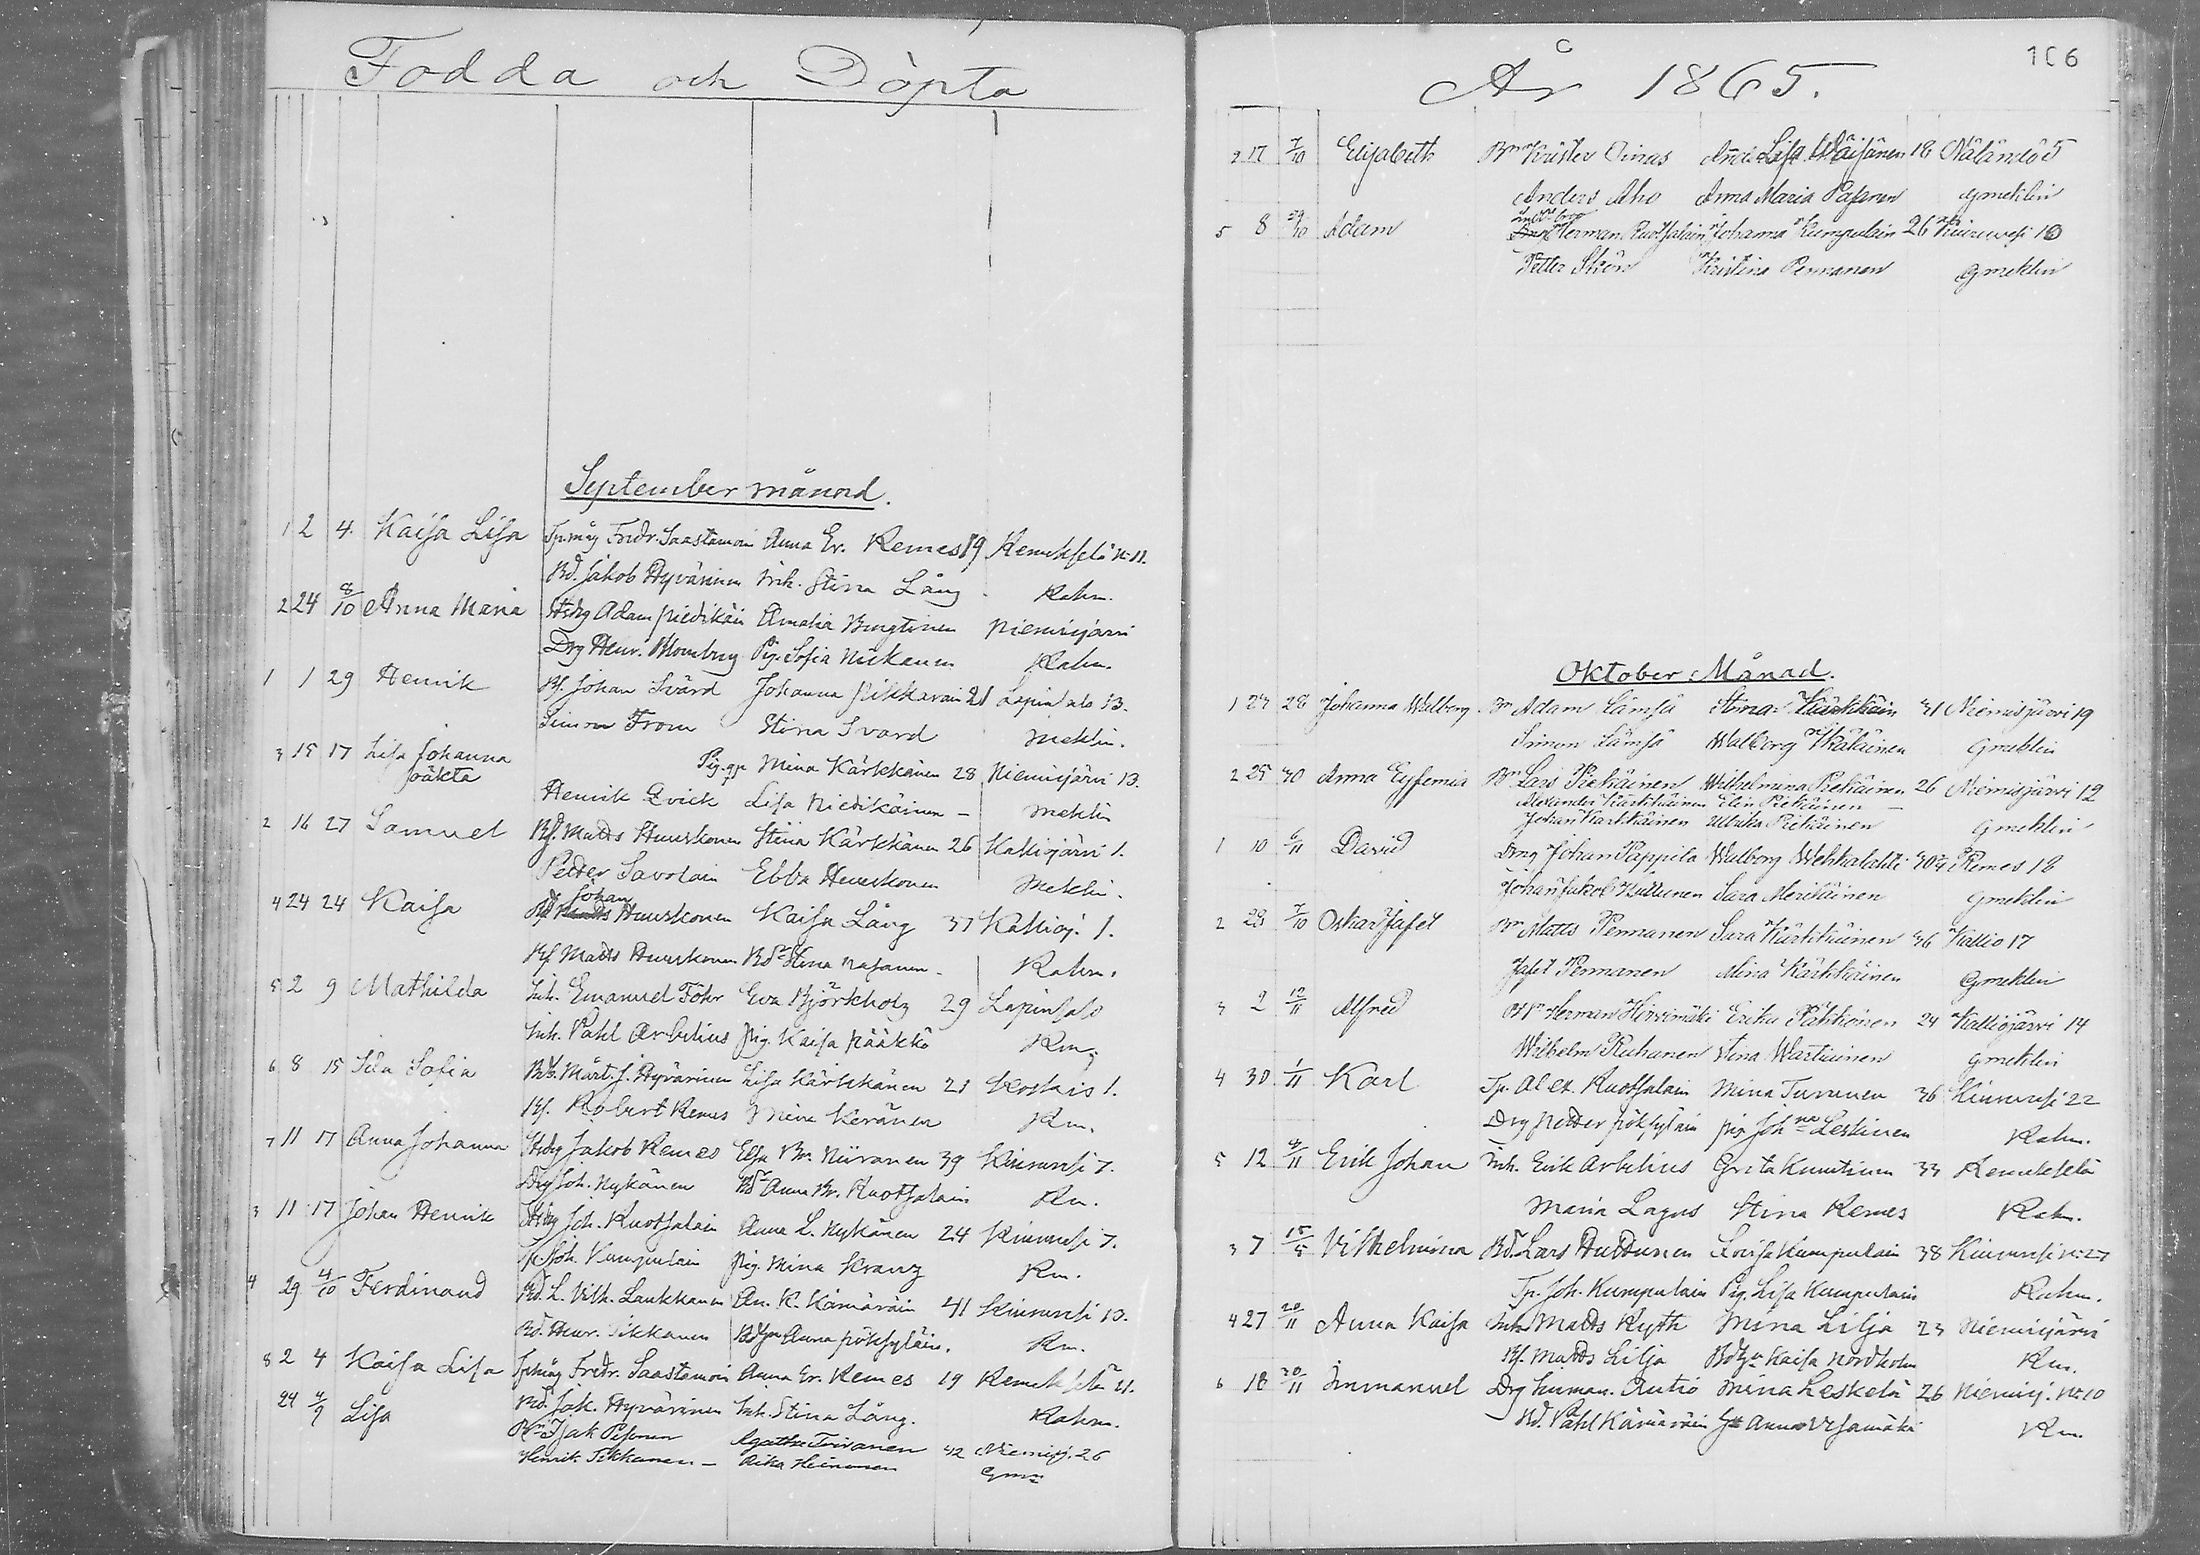 Fodda och Döpta
September månad.
1 2 4. Kaisa Lisa Fredr. Saastamoin Anna Er. Remes 19 Remekselä N:11.
Bd. Jakob Hyvärinen Inh. Stina Lång Rahm.
2 24 8/10 Anna Maria Adam Piedikäin Amalia Niemisjärvi
Drg Henr. Blomberg Pig. Sofia Rahm.
1 1 29 Henrik Bf. Johan Svärd Johanna Pikkarain 21 Lapinsalo 13.
Simon From Stina Svard Meklin.
3 15 17 Lisa Johanna oäkta Pig. Mina Kärkkänen 28 Niemisjärvi 13.
Henrik Qvick Lisa Niedikäinen – Meklin
2 16 27 Samuel Bf. Matts Huuskonen Stina Kärkkänen 26 Kalliojärvi 1.
Petter Savolain Ebba Huuskonen Meklin.
4 24 24 Kaisa Johan Huuskonen Kaisa Lång 37 Kallioj. 1.
Bf Matts Huuskonen Stina Rahm.
5 2 9 Mathilda Inh. Emanuel Föhr Eva Björkholz 29 Lapinsalo
Inh. Pahl Arbelius Pig. Kaisa Pääkkö Rm.
6 8 15 Lisa Sofia Märt. J. Hyvärinen Lisa Kärkkänen 21 Koskis 1.
Bf. Robert Remes Mina Keränen Rm.
7 11 17 Anna Johanna Jakob Remes Elsa Br. Niiranen 39 Kiuruvesi 7.
Drg Joh. Nykänen Anna Br. Ruotsalain Rm.
3 11 17 Johan Henrik Joh. Ruotsalain Anna L. Nykänen 24 Kiuruvesi 7.
Joh. Kumpulain Pig. Mina Kranz Rm.
4 29 4/10 Ferdinand Bd. L. Vilh. Laukkanen An. K. Kämäräin 41 Kiuruvesi 13.
Bd. Henr. Tikkanen Anna Pöksyläin. Rm.
8 2 4 Kaisa Lisa Fredr. Saastamoin Anna Er. Remes 19 Remekselä 11.
Bd. Jak. Hyvärinen Inh. Stina Lång. Rahm.
24 4/9 Lisa Isak Pesonen Agatha Toivanen 42 Niemisj. 26
Henrik Tikkanen – Rika Heinonen

År 1865.
106
2 17 7/10 Elisabeth Krister Oinas Lisa Wäisänen 18 Näläntö 5
Anders Aho Anna Maria Pasanen Gmeklin
5 8 29/10 Adam Herman Ruotsalain Johanna Kumpulain 26 Kiuruvesi 10
Petter Skön Kristina Pennanen Gmeklin
Oktober Månad.
1 27 28 Johanna Walborg Bn Adam Lämsä Stina Kärkkäin 31 Niemisjärvi 19
Simon Lämsä Walborg Wäläinen Gmeklin
2 25 30 Anna Eyfemia Bn Lars Piekäinen Wilhelmina Piekäinen 26 Niemisjärvi 12
Alexander Kärkkäinen Elin Piekäinen –
Johan Kärkkäinen Ulrika Piekäinen Gmeklin
1 10 6/11 David Drng Johan Pappila Walborg Wehkalahti 30 Remes 18
Johan Jakob Huttunen Sara Meriläinen Gmeklin
2 28 7/10 Oskar Jafet Bn Matts Pennanen Sara Kärkkäinen 36 Kallio 17
Jafet Pennanen Mina Kärkkäinen Gmeklin
3 2 12/11 Alfred Herman Hirsimäki Erika Pähkönen 24 Kalliojärvi 14
Wilhelm Ruhanen Stina Wartiainen Gmeklin
4 30 1/11 Karl Alex. Ruotsalain Mina Turunen 36 Kiuruvesi 22
Drg Petter Pöksyläin Pig Johna Leskinen Rahm.
5 12 4/11 Erik Johan Inh. Erik Arbelius Greta Knuutinen 33 Remekselä
Maria Lagus Stina Remes Rahm.
3 7 15/5 Vilhelmina Bd. Lars Huttunen Lovisa Kumpulain 38 Kiuruvesi N:27
Joh. Kumpulain Pig. Lisa Kumpulain Rahm.
4 27 20/11 Anna Kaisa Inh Matts Ryth Mina Lilja 23 Niemisjärvi
Bf. Matts Lilja Kaisa Nordholm Rm.
6 18 30/11 Immanuel Drg Autio Mina Leskelä 26 Niemisj. No 10
Bd. Pahl Kämäräin Anna Vesamäki Rm.